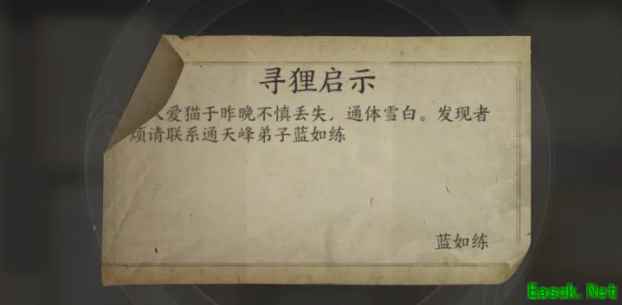 寻狸启示
人爱猫于昨晚不慎丢失，通体雪白。发现者
烦请联系通天峰弟子蓝如练
蓝如练
Easck.Net